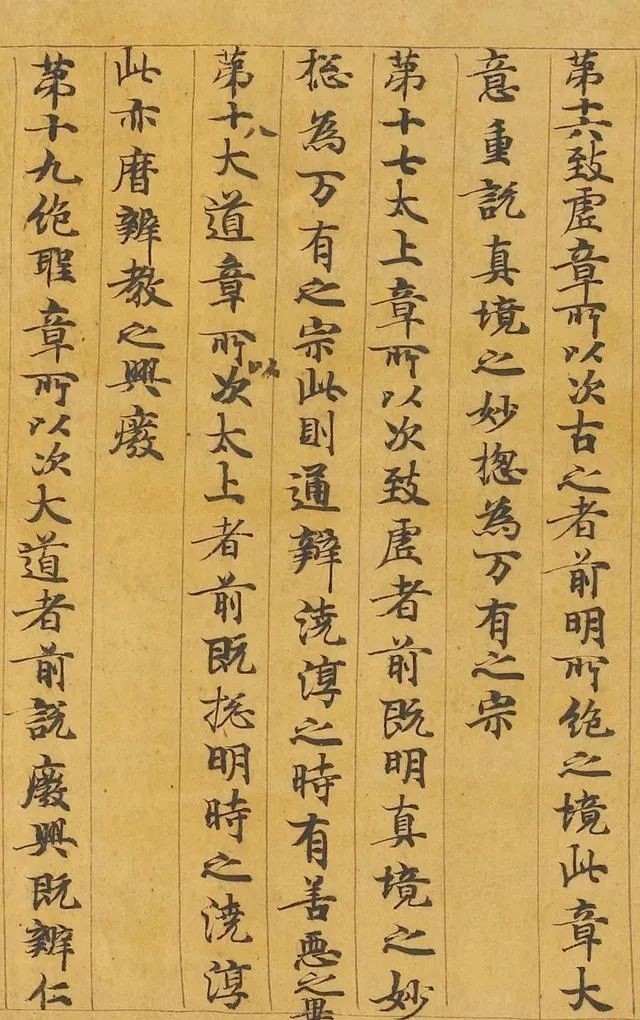 苐十六致虗章所以次古之者前明所絶之境此章大
意重說真境之妙揔為万有之宗
苐十七太上章所以次致虗者前既明真境之妙
揔為万有之宗此則通辯澆淳之時有善惡之異
苐十八大道章所以次太上者前既揔明時之澆淳
此亦曆辨教之興癈
苐十九絶聖章所以次大道者前說癈興既辨仁